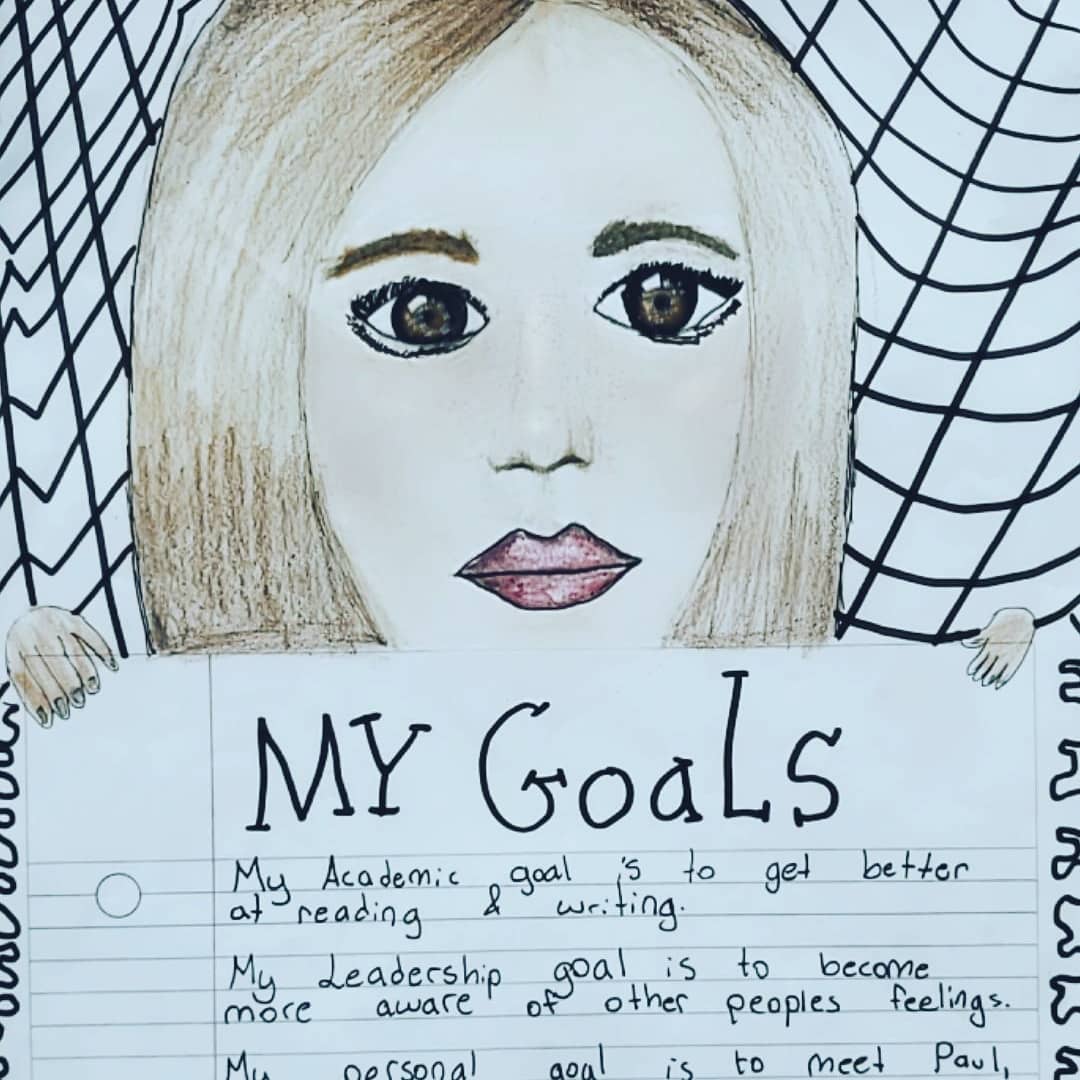 MY Goals
My Academic goal is to get better
at reading & writing.
My Leadership goal is to become
more aware of other peoples feelings.
My personal goal is to meet Paul,